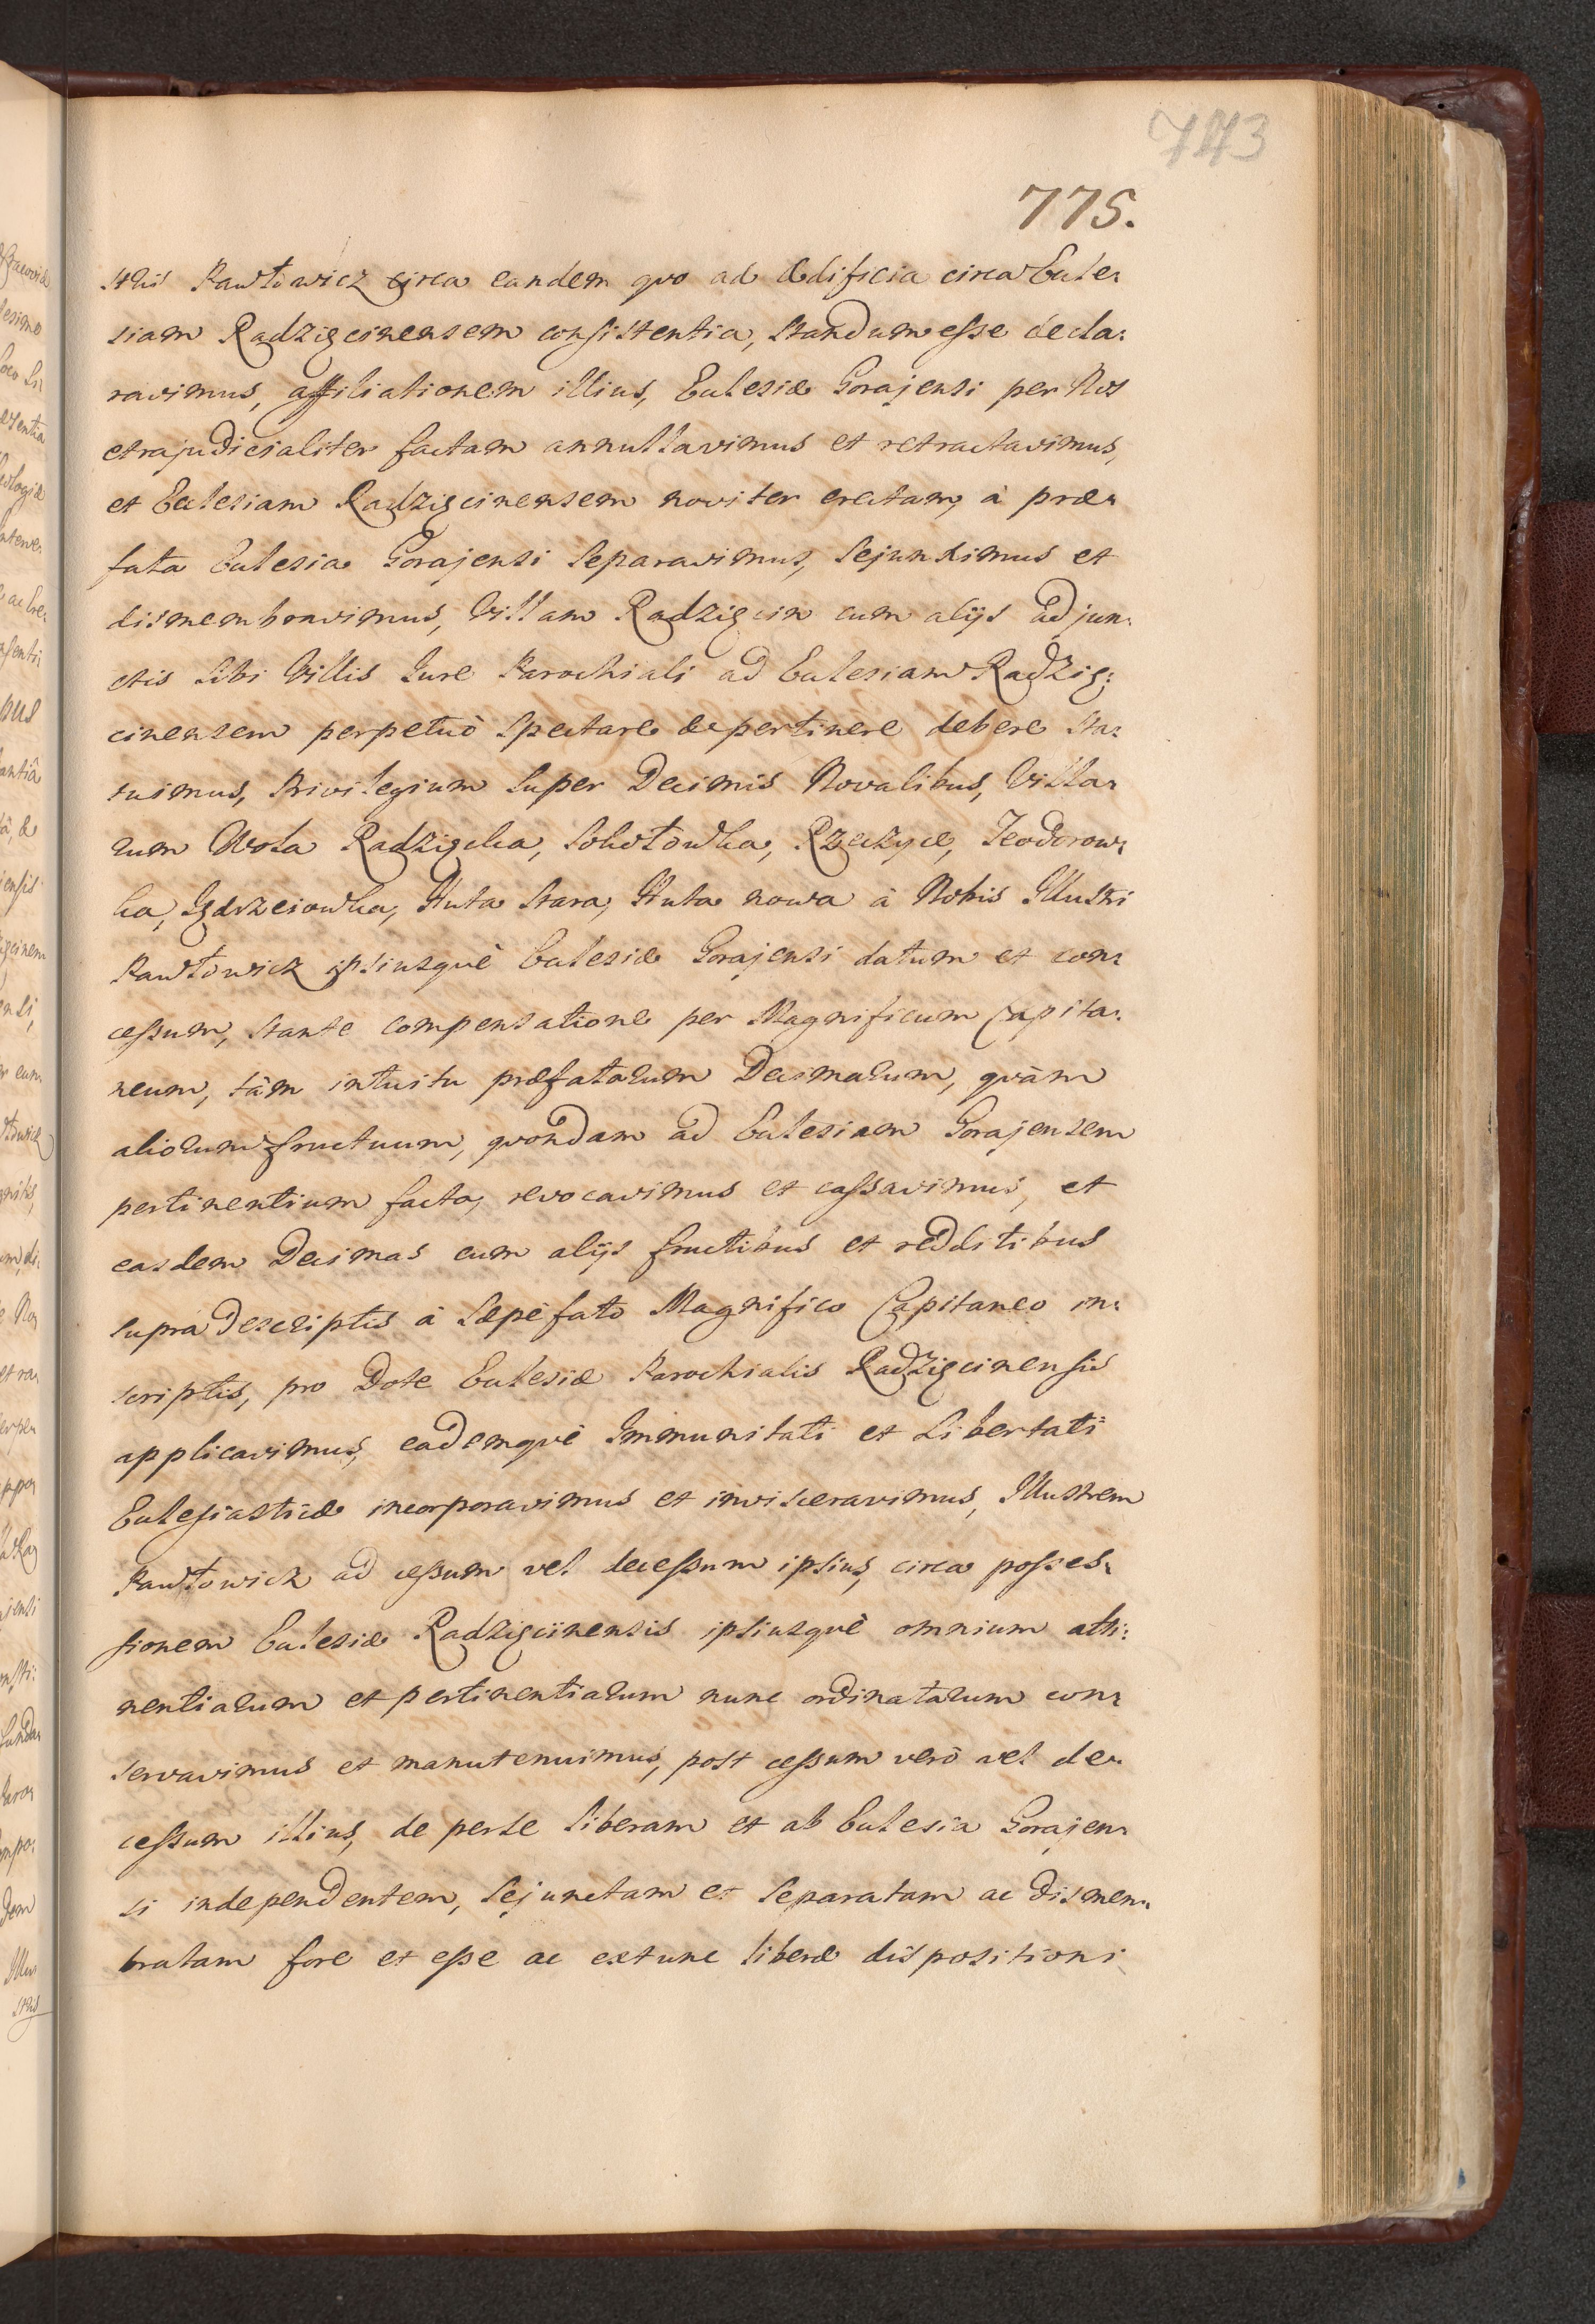 743
775.
stris Pawłowicz circa eandem quo ad ædificia circa Eccle:
siam Radzięcinensem consistentia, standum esse decla:
ravimus, affiliationem illius, Ecclesiæ Gorajensi per Nos
etrajudicialiter factam annullavimus et retractavimus,
et Ecclesiam Radzięcinensem noviter erectam, à præ:
fata Ecclesia Gorajensi separavimus, sejunximus et
dismembravimus, Villam Radzięcin cum alijs adjun:
ctis sibi Villis Jure Parochiali ad Ecclesiam Radzię:
cinensem perpetuò spectare & pertinere debere sta:
tuimus, Privilegium super Decimis Novalibus, Villa:
rum Wola Radzięcka, Sokołowka, Rzeczyce, Teodorow:
ka, Huta Stara, Huta nowa à Nobis Illustri
Pawłowicz ipsiusquè Ecclesiæ Gorajensi datum et con:
cessum, stante compensatione per Magnificum Capita:
neum, tàm intuitu præfatarum Decimarum, quàm
aliorum fructuum, quondam ad Ecclesiam Gorajensem
pertinentium facta, revocavimus et cassavimus, et
easdem Decimas cum alijs fructibus et redditibus
supra descriptis à sæpèfato Magnifico Capitaneo in:
scriptis, pro Dote Ecclesiæ Parochialis Radzięcinensis
applicavimus, eademquè Immunitati et Libertati
Ecclesiasticæ incorporavimus et invisceravimus, Illustrem
Pawłowicz ad cessum vel decessum ipsius, circa posses:
sionem Ecclesiæ Radzięciinensis ipsiusquè omnium atti:
nentiarum et pertinentiarum nunc ordinatarum con:
servavimus et manutenuimus, post cessum verò vel de:
cessum illius, de perse liberam et ab Ecclesia Gorajen:
si independentem, sejunctam et separatam ac dismem:
bratam fore et esse ac extunc liberæ dispositioni